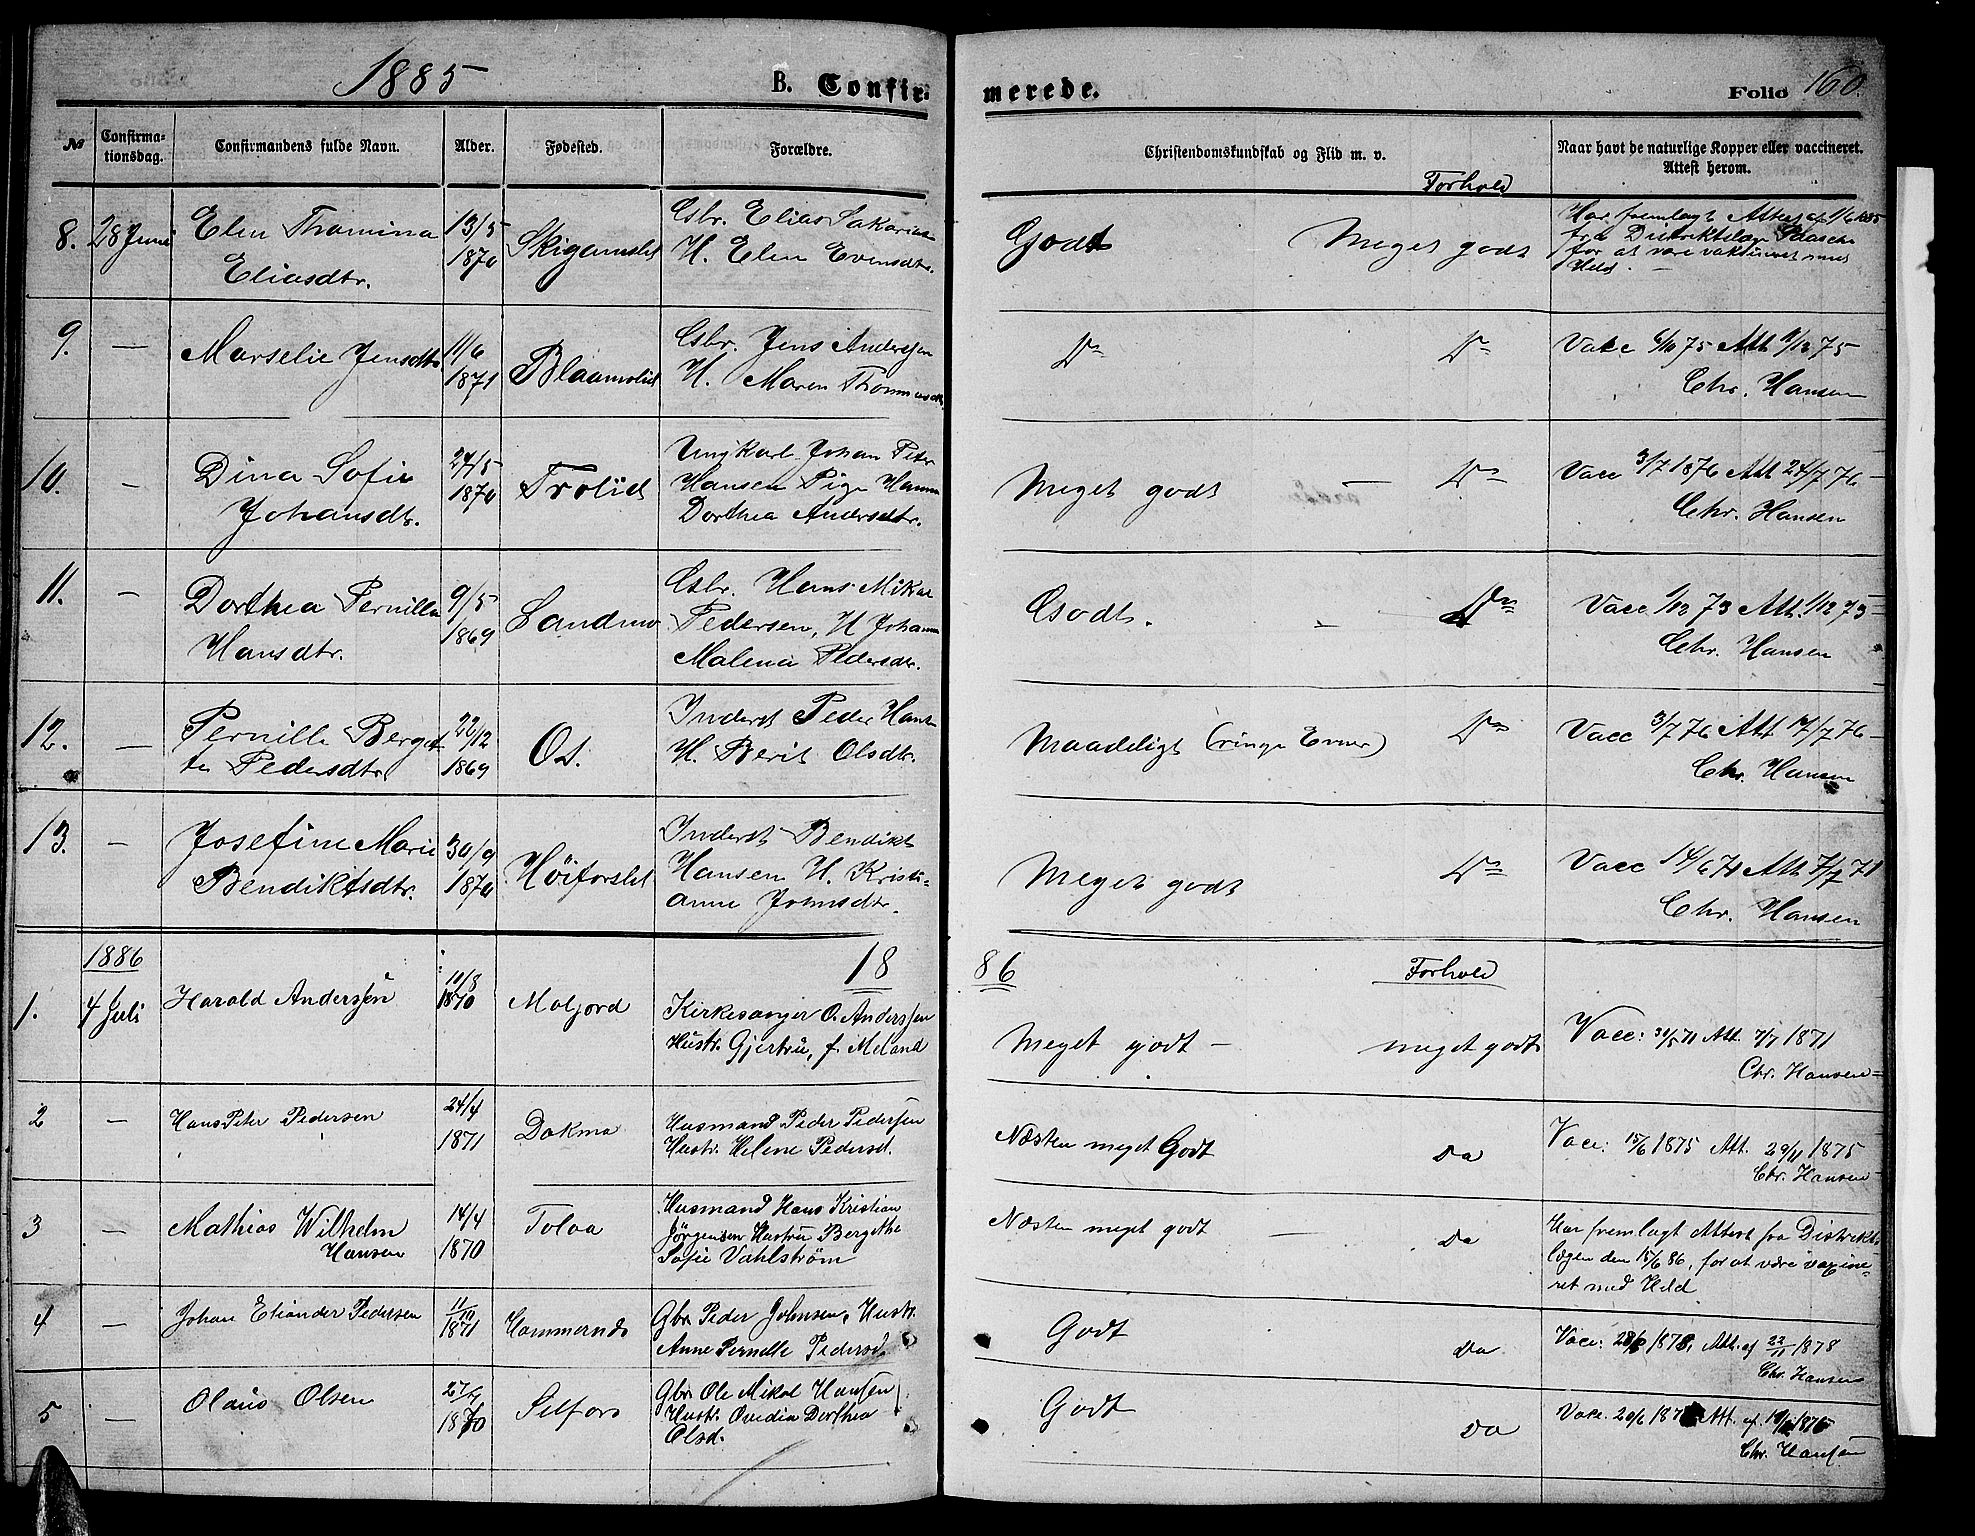 1885
B. Confir-
merede.
Folio 160.
№
Confirma-
tionsdag.
Confirmandens fulde Navn.
Alder.
Fødested.
Forældre.
Christendomskundskab og Flid m. v.
Forhold
Naar havt de naturlige Kopper eller vaccineret.
Attest herom.
8. 28 Juni
Elen Thomina
Eliasdtr.
13/5
1870
Gbr. Elias Sakarias
H. Elen Evensdtr.
Godt
Meget godt
Har fremlagt Attest af 1/6 1885
fra Distriktslæge
for at være vaksineret med
Held. —
9. —
Marselie Jensdtr
11/6
1871
Blaamolid
Gbr. Jens Anderssen
H. Maren Thomasdtr.
Do
Do
Vakc 6/10 75 Att 9/12 75
Chr. Hansen
10. —
Dina Sofie
Johansdtr.
24/5
1870
Trolid
Ungkarl Johan Peter
Hansen Pige Hanna
Dorthea Andersdtr.
Meget godt — Do
Vacc 3/7 1876 Att 24/7 76
Chr. Hansen
11. —
Dorthea Pernilla
Hansdtr.
9/5
1869
Sandmo
Gbr. Hans Mikal
Pedersen, H Johanna
Malena Pedersdtr.
Godt. — Do
Vacc 1/12 73 Att. 1/12 73
Chr. Hansen
12. —
Pernille Berget-
te Pedersdtr
22/12
1869
Os.
Inderst Peder Hansen
H. Berit Olsdtr.
Maadeligt (ringe Evner) Do
Vacc 3/7 76 Att 17/7 76
Chr. Hansen
13. —
Josefine Marie
Bendiktsdtr.
30/9
1870
Høiforslid
Inderst Bendikt
Hansen H. Kristi-
anne Johnsdtr.
Meget godt Do
Vacc 14/6 71 Att 7/7 71
Chr. Hansen
1886
18
86
Forhold
1. 4 Juli
Harald Anderssen
10/8
1870
Moljord
Kirkesanger O. Anderssen
Hustr. Gjertru, f. Meland
Meget godt — meget godt
Vacc: 31/5 71 Att. 7/7 1871
Chr. Hansen
2 —
Hans Peter Pedersen
24/4
1871
Dokmo
Husmand Peder Pedersen
Hustr. Helene Pedersd.
Næsten meget Godt Do
Vacc: 15/6 1875 Att. 29/11 1875
Chr. Hansen
3 —
Mathias Wilhelm
Hansen
14/4
1870
Tolaa
Husmand Hans Kristian
Jørgensen Hustru Bergithe
Sofie Vahlström
Næsten meget godt — Do
Har fremlagt Attest fra Distrikts
lægen den 15/6 86, for at være vaxine-
ret med Held
4 —
Johan Eliander Pedersen
11/10
1871
Hammernes
Gbr Peder Johnsen, Hustr.
Anne Pernelle Pedersd
Godt Do
Vacc: 1878, Att. af 22/11 1878
Chr. Hansen
5 —
Olaus Olsen
1870
Selfors
Gbr Ole Mikal Hansen
Hustr. Ovedia Dorthea
Olsd.
Godt Do
Chr. Hansen